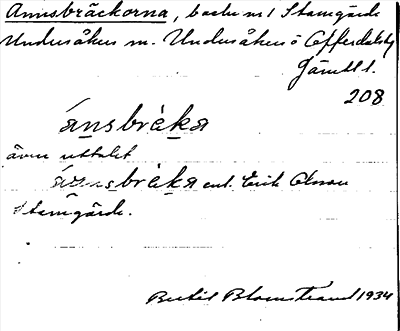 Annsbräckorna, backe n:r 1 Stamgärde
Undersåkers sn. Undersåkers o Offerdals tg
Jämtl l.
208
ánsbrèka
även uttalet
ánnsbrèka enl. Erik Olsson
Stamgärde.
Bertil Blomstrand 1934